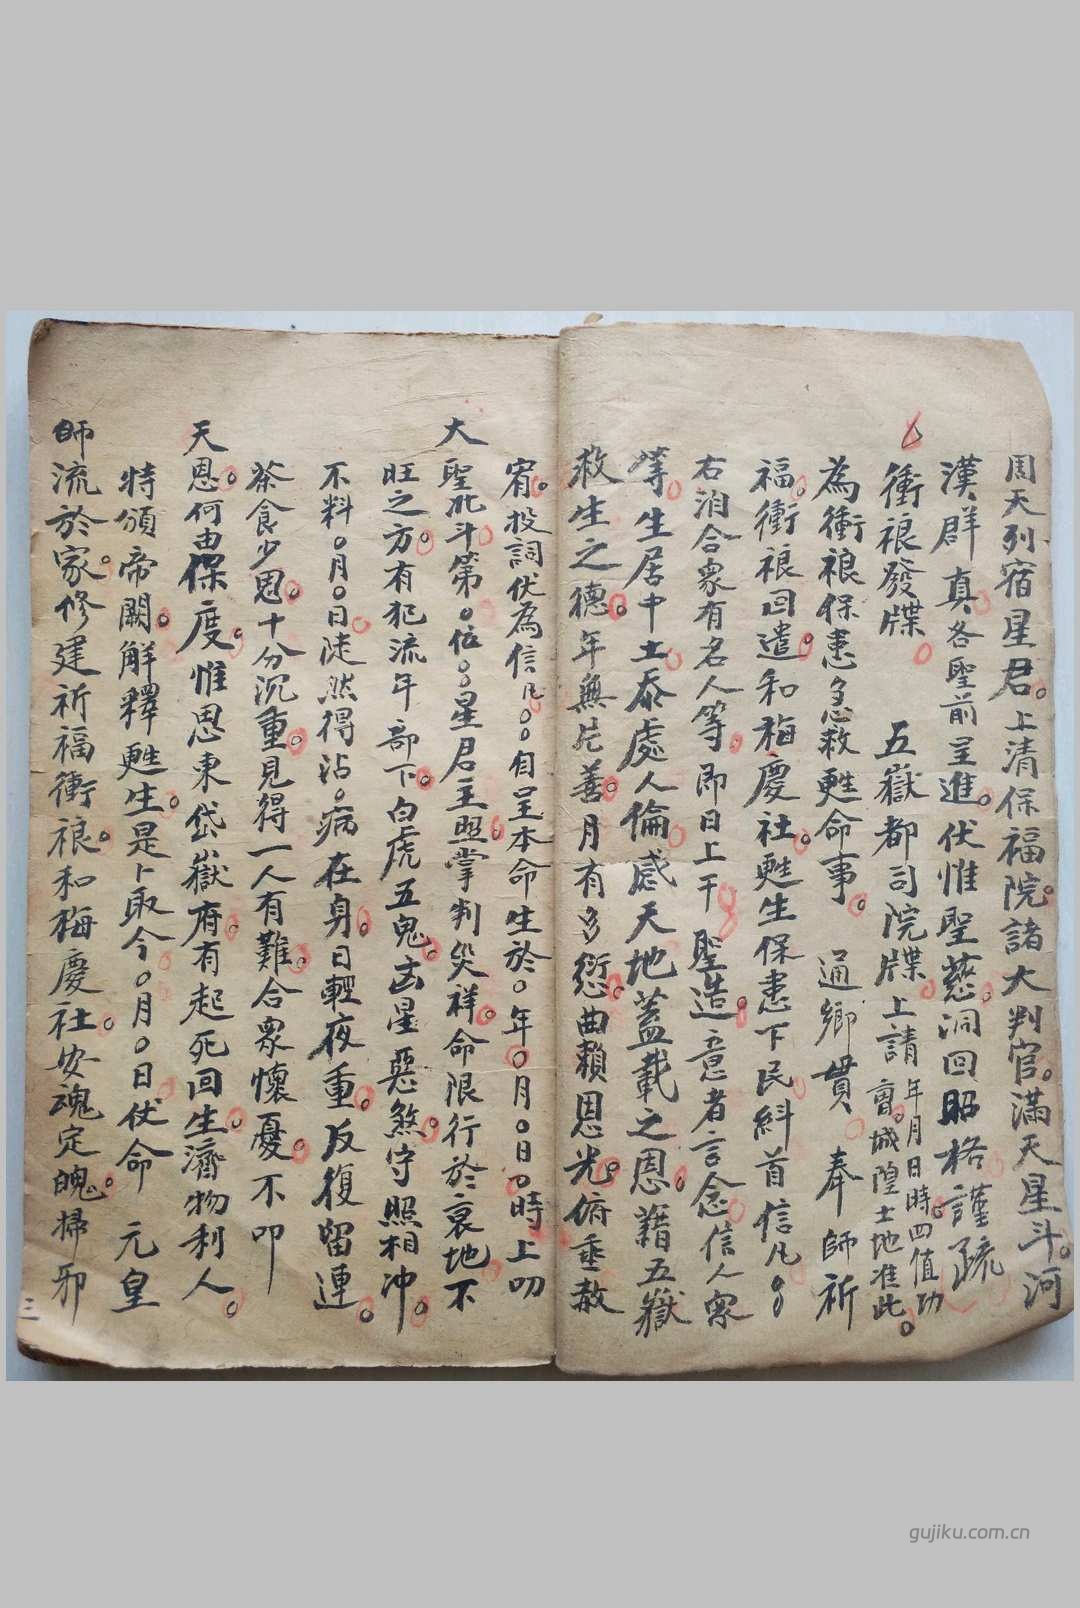 周天列宿星君。上清保福院諸大判官。滿天星斗。河
漢群 真各聖前呈進。伏惟聖慈。洞回昭格謹疏
衝裉發牒 五嶽都司院牒 上請 年月日時四值功
曹。城隍土地准此。
為衝裉保患急救甦命事。 通鄉貫 奉 師祈
福。衝裉回遣。和梅慶社。甦生保患下民糾首信凡
右洎合衆有名人等。即日上干 聖造。意者言念信人家
等。生居中土忝處人倫感天地蓋載之恩。藉五嶽
救生之德。年無片善。月有多愆。曲賴恩光。俯垂赦
宥。投詞伏為信凡〇〇自呈本命生於〇年〇月〇日〇時上叨
大聖北斗第〇位〇〇星君主照掌判災祥。命限行於衰地不
旺之方。有犯流年部下。白虎五鬼。凶星惡煞。守照相冲。
不料〇月〇日陡然得沾〇病在身。日輕夜重。反復留連。
茶食少思。十分沉重。見得一人有難。合衆懷憂。不叩
天恩。何由保度。惟恩東岱嶽府。有起死回生。濟物利人。
特頒帝闕。解釋甦生。是卜取今〇月〇日伏命 元皇
師流於家。修建祈福衝裉。和梅慶社。安魂定魄。掃邪
三
gujiku.com.cn